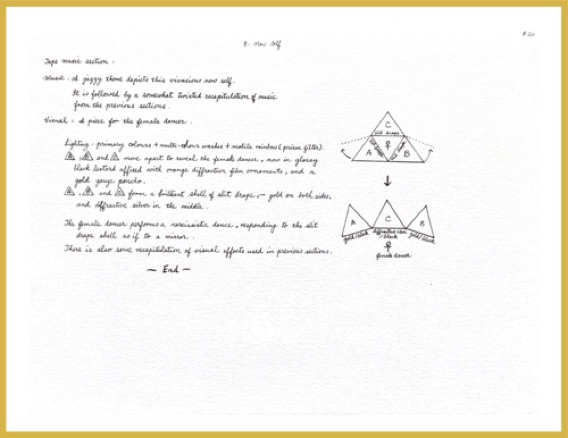 P.20
8. New Self
Tape music section :
Music : A jazzy theme depicts this vivacious new self.
It is followed by a somewhat twisted recapitulation of music
from the previous sections.
Visual : A piece for the female dancer.
Lighting : primary colours + multi-colour washes + mobile rainbow (prism filter).
A, B and C move apart to reveal the female dancer, now in glossy
black leotard affixed with orange diffraction film ornaments, and a
gold gauze poncho.
A, B and C form a brilliant shell of slit drapes, — gold on both sides,
and diffractive silver in the middle.
The female dancer performs a narcissistic dance, responding to the slit
drape shell as if to a mirror.
There is also some recapitulation of visual effects used in previous sections.
— End —
C
slit drape
A
slit drape
slit drape
B
A
C
B
gold/black
diffractive silver
/black
gold/black
female dancer